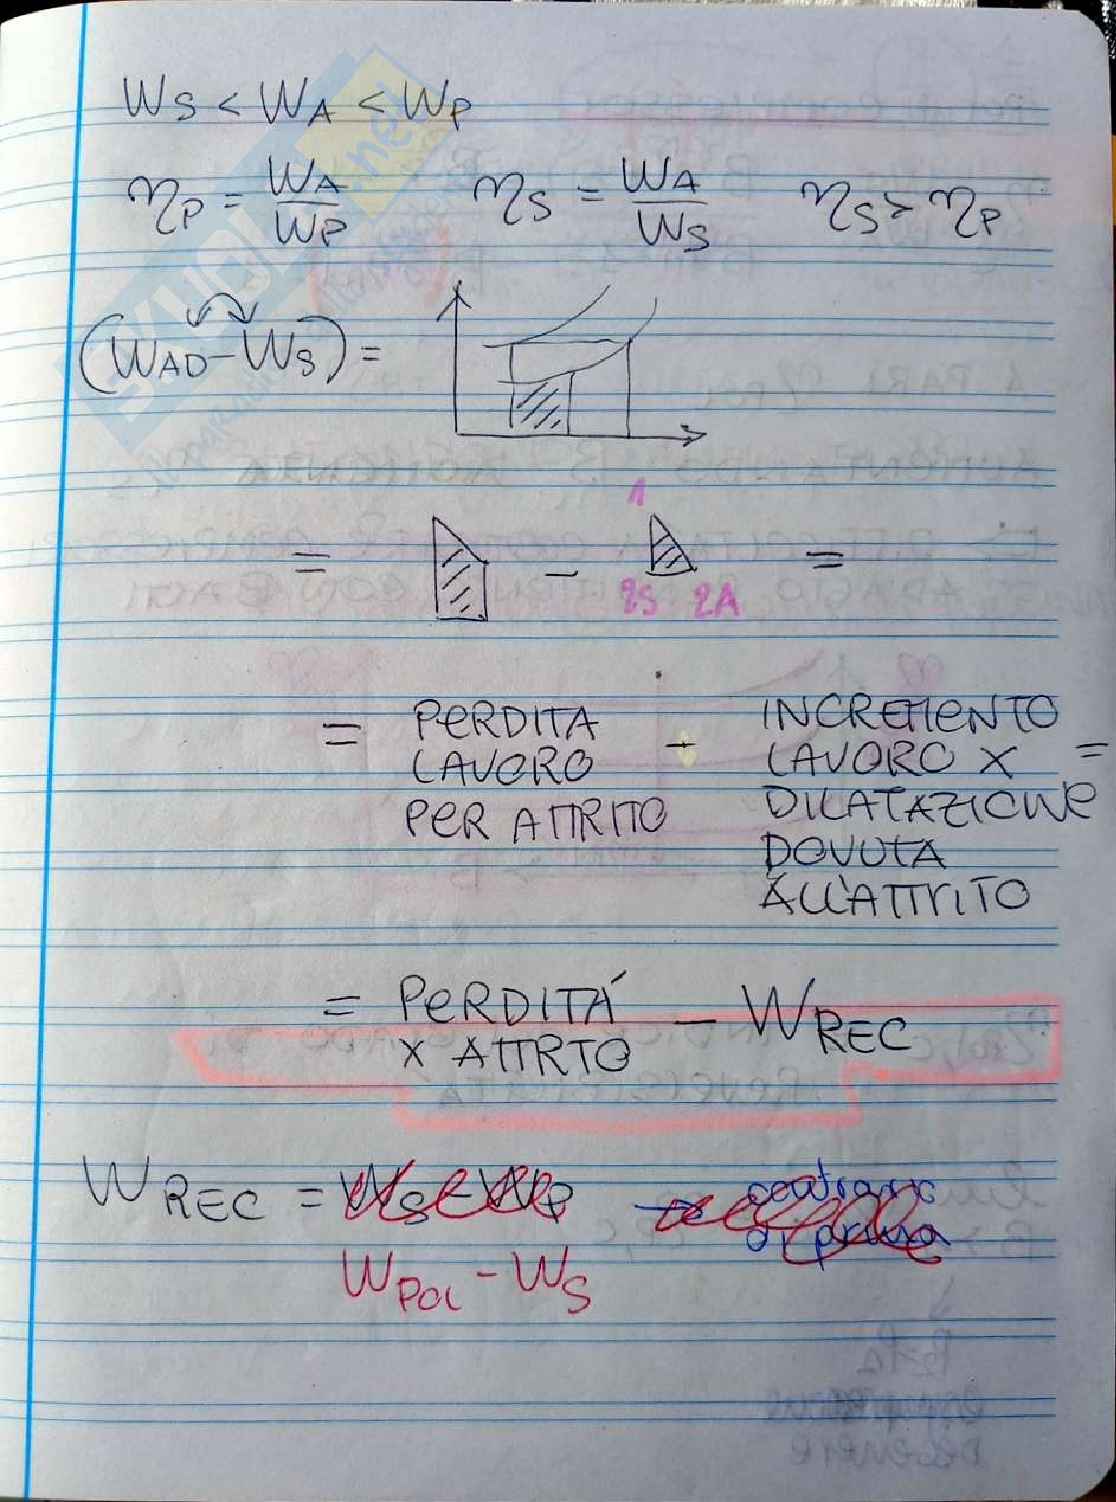 WS < WA < WP
ηP = WA/WP ηS = WA/WS ηS > ηP
(WAD - WS) =
1
= - =
2S 2A
= PERDITA LAVORO PER ATTRITO - INCREMENTO LAVORO X DILATAZIONE DOVUTA ALL'ATTRITO =
= PERDITÁ X ATTRTO - WREC
WREC = WS - WP contrario di prima
WPOL - WS